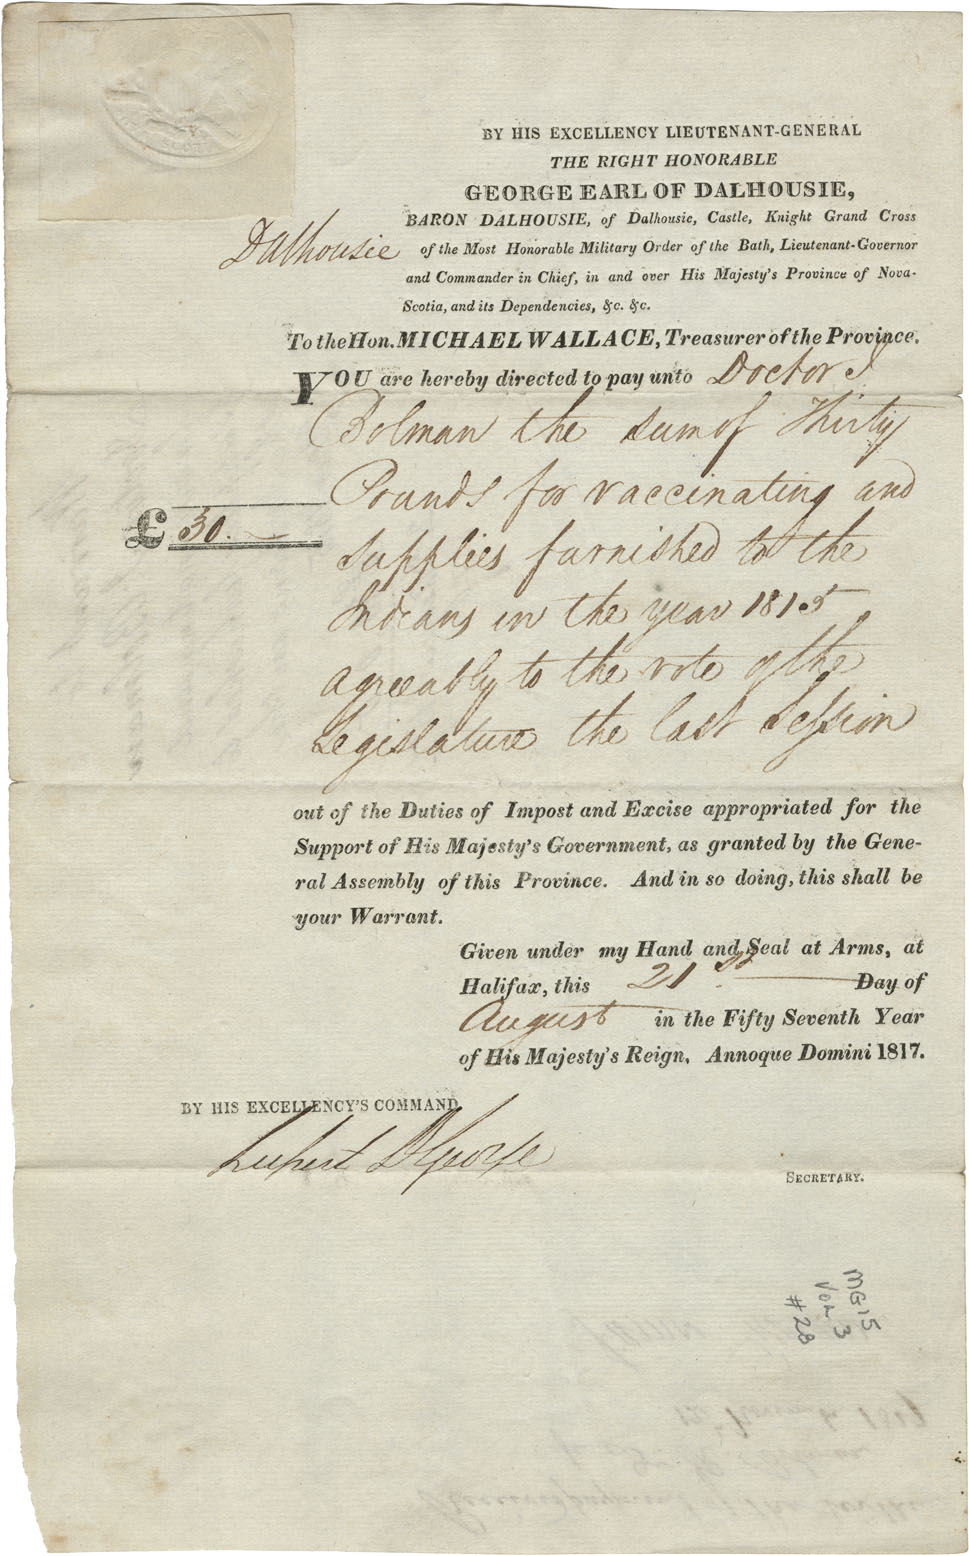 BY HIS EXCELLENCY LIEUTENANT-GENERAL
THE RIGHT HONORABLE
GEORGE EARL OF DALHOUSIE,
BARON DALHOUSIE, of Dalhousie, Castle, Knight Grand Cross
Dalhousie
of the Most Honorable Military Order of the Bath, Lieutenant-Governor
and Commander in Chief, in and over His Majesty's Province of Nova-
Scotia, and its Dependencies, &c. &c.
To the Hon. MICHAEL WALLACE, Treasurer of the Province.
YOU are hereby directed to pay unto Doctor
Bolman the sum of Thirty
Pounds for vaccinating and
£ 30.
Supplies furnished to the
Indians in the year 1815
agreeably to the vote of the
Legislature the last Session
out of the Duties of Impost and Excise appropriated for the
Support of His Majesty's Government, as granted by the Gene-
ral Assembly of this Province. And in so doing, this shall be
your Warrant.
Given under my Hand and Seal at Arms, at
Halifax, this 21st Day of
August in the Fifty Seventh Year
of His Majesty's Reign, Annoque Domini 1817.
BY HIS EXCELLENCY'S COMMAND
Rupert D George
SECRETARY.
MG 15
VOL 3
# 28